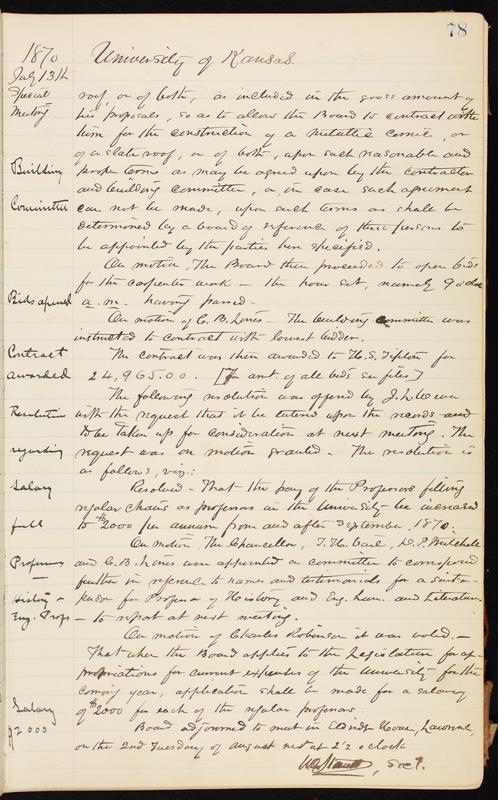 78
1870 University of Kansas.
July 13th
Special
Meeting
roof, or of both, as included in the gross amount of
his proposals, so as to allow the Board to contract with
him for the construction of a metallic cornice, or
of a slate roof, or of both, upon such reasonable and
Building
proper terms as may be agreed upon by the contractor
and building committee, or, in case such agreement
Committee
can not be made, upon such terms as shall be
determined by a board of reference of three persons to
be appointed by the parties here specified.
On motion, The Board then proceeded to open bids
for the carpenter work — the hour set, namely 9 o'clock
Bids opened
a.m. having passed.
On motion of C. B. Lines — The building committee was
instructed to contract with lowest bidder.
Contract
The contract was then awarded to H. S. Tipton for
awarded
24,965.00. [For amt. of all bids see files]
The following resolution was offered by
Resolution
with the request that it be entered upon the records and
to be taken up for consideration at next meeting. The
regarding
request was on motion granted. The resolution is
as follows, viz.:
Salary
Resolved — That the pay of the Professors filling
regular chairs as professors in the University be increased
full
to $2000 per annum from and after September, 1870.
On motion, The Chancellor, T. H. Vail, D. P. Mitchell
Professors
and C. B. Lines were appointed a committee to correspond
further in reference to names and testimonials for a suitable
History &
person for Professor of History and Eng. Lan. and Literature
Eng. Profs
— to report at next meeting.
On motion of Charles Robinson it was voted. —
That when the Board applies to the Legislature for ap-
propriations for current expenses of the University for the
coming year, application shall be made for a salary
Salary
of $2000 for each of the regular professors.
$2000
Board adjourned to meet in Eldridge House, Lawrence,
on the 2nd Tuesday of August next at 2½ o'clock
Sec'y.